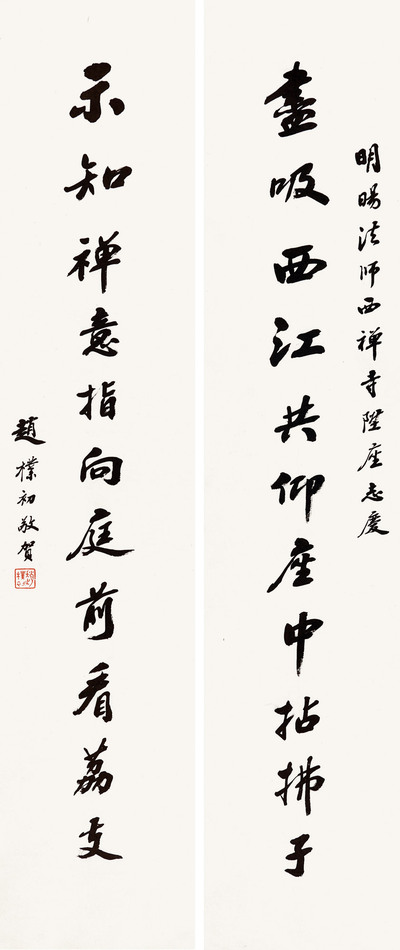 明暘法师西禅寺陞座志慶
盡吸西江共仰座中拈拂子
示知禅意指向庭前看荔支
趙樸初敬賀